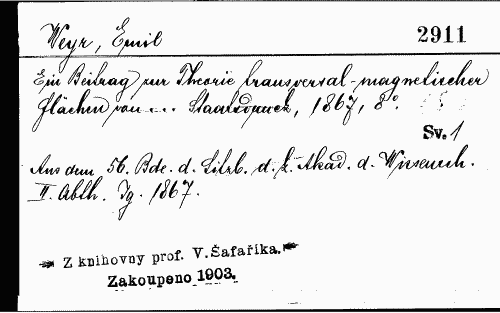 Weyr, Emil
2911
Ein Beitrag zur Theorie transversal-magnetischer
Flächen von ... Staatsdruck, 1867, 8°.
Sv. 1
Aus dem 56. Bde. d. Sitzb. d. k. Akad. d. Wissensch.
II. Abth. Jg. 1867.
Z knihovny prof. V. Šafaříka.
Zakoupeno 1903.